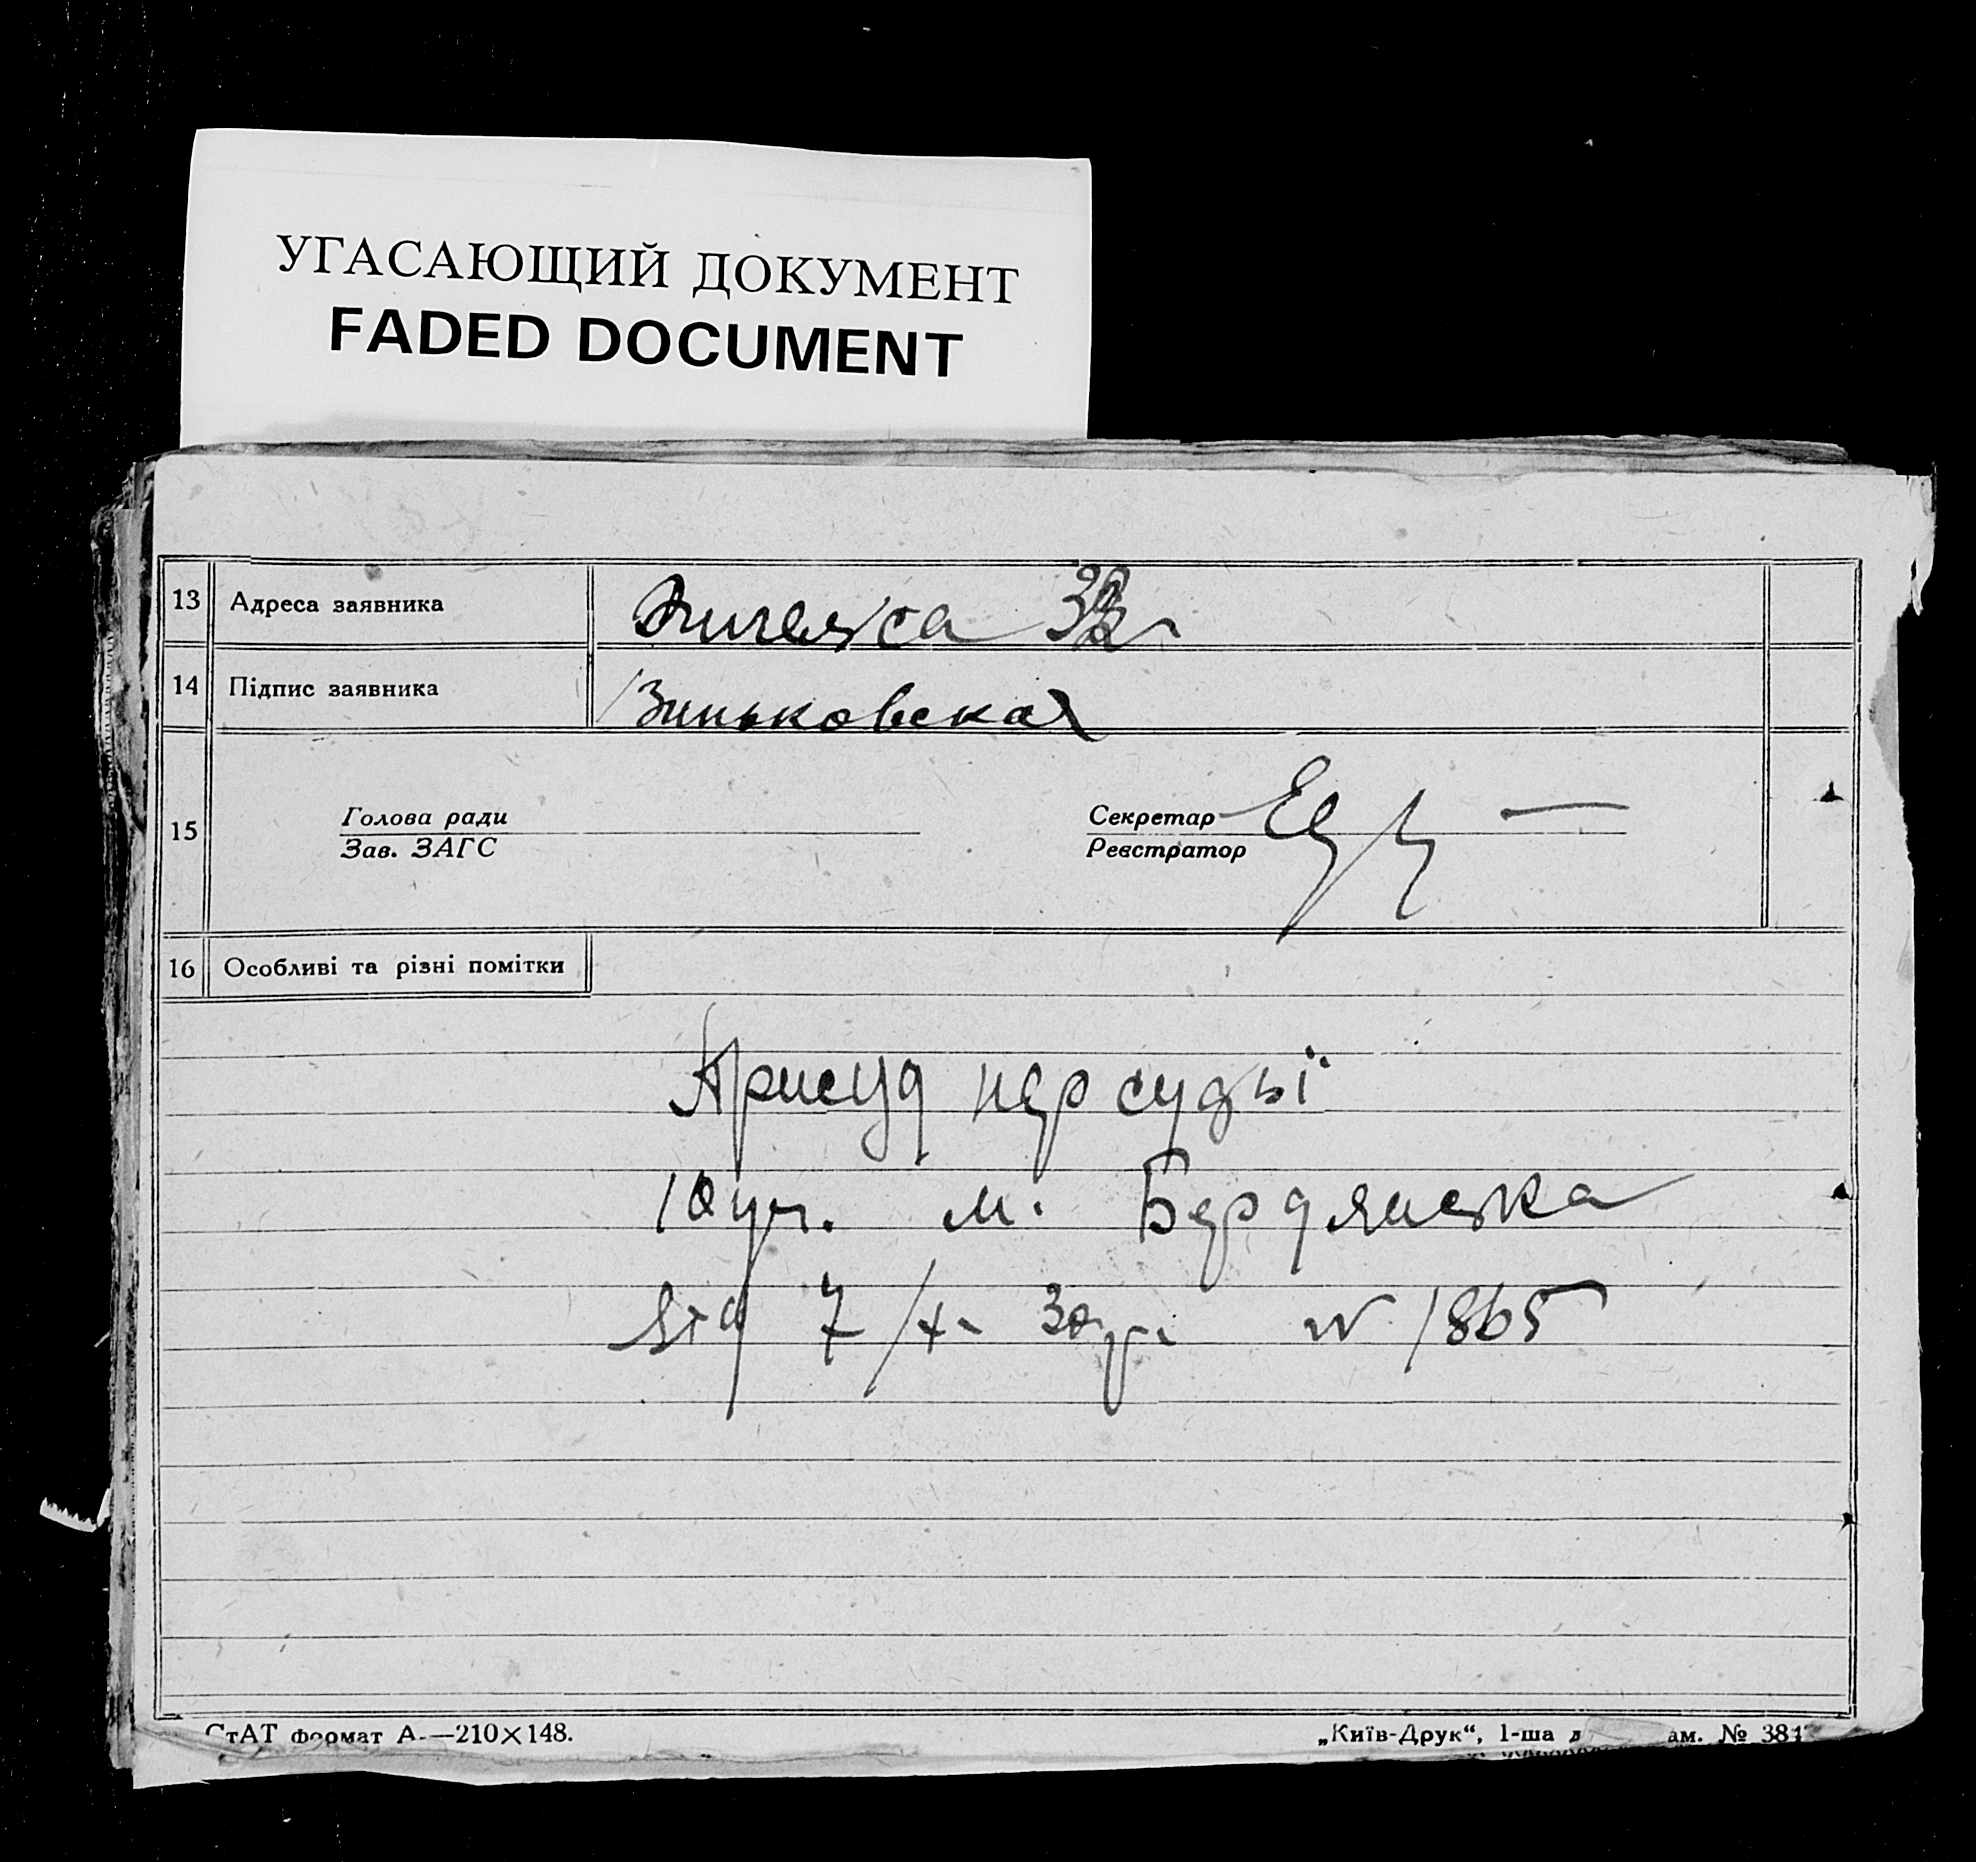 УГАСАЮЩИЙ ДОКУМЕНТ
FADED DOCUMENT
13 Адреса заявника
14 Підпис заявника Зиньковская
15 Голова ради Секретар
Зав. ЗАГС Реєстратор
16 Особливі та різні помітки
Присуд нарсудьї
10 уч. м. Бердянска
від 7/х- 38 р. № 1865
СтАТ формат А.—210×148.
„Київ-Друк“, 1-ша ам. № 381